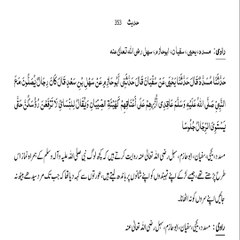 حدیث 353
راوی: مسدد، یحیی، سفیان، ابوحازم، سہل رضی اللہ تعالیٰ عنہ
حَدَّثَنَا مُسَدَّدٌ قَالَ حَدَّثَنَا يَحْيَى عَنْ سُفْيَانَ قَالَ حَدَّثَنِي أَبُو حَازِمٍ عَنْ سَهْلِ بْنِ سَعْدٍ قَالَ كَانَ رِجَالٌ يُصَلُّونَ مَعَ
النَّبِيِّ صَلَّى اللهُ عَلَيْهِ وَسَلَّمَ عَاقِدِي أُزْرِهِمْ عَلَى أَعْنَاقِهِمْ كَهَيْئَةِ الصِّبْيَانِ وَيُقَالُ لِلنِّسَاءِ لَا تَرْفَعْنَ رُءُوسَكُنَّ حَتَّى
يَسْتَوِيَ الرِّجَالُ جُلُوسًا
مسدد، یحیی، سفیان، ابوحازم، سہل رضی اللہ تعالیٰ عنہ روایت کرتے ہیں کہ کچھ لوگ نبی صلی اللہ علیہ وآلہ وسلم کے ہمراہ نماز اس
طرح پڑھتے تھے، جیسے لڑکے اپنے تہبندوں کو اپنے شانوں پر باندھ لیتے ہیں، عورتوں سے کہہ دیا تھا کہ جب تک مرد سیدھے بیٹھ نہ
جائیں اپنے سروں کو نہ اٹھانا۔
راوی: مسدد، یحیی، سفیان، ابوحازم، سہل رضی اللہ تعالیٰ عنہ